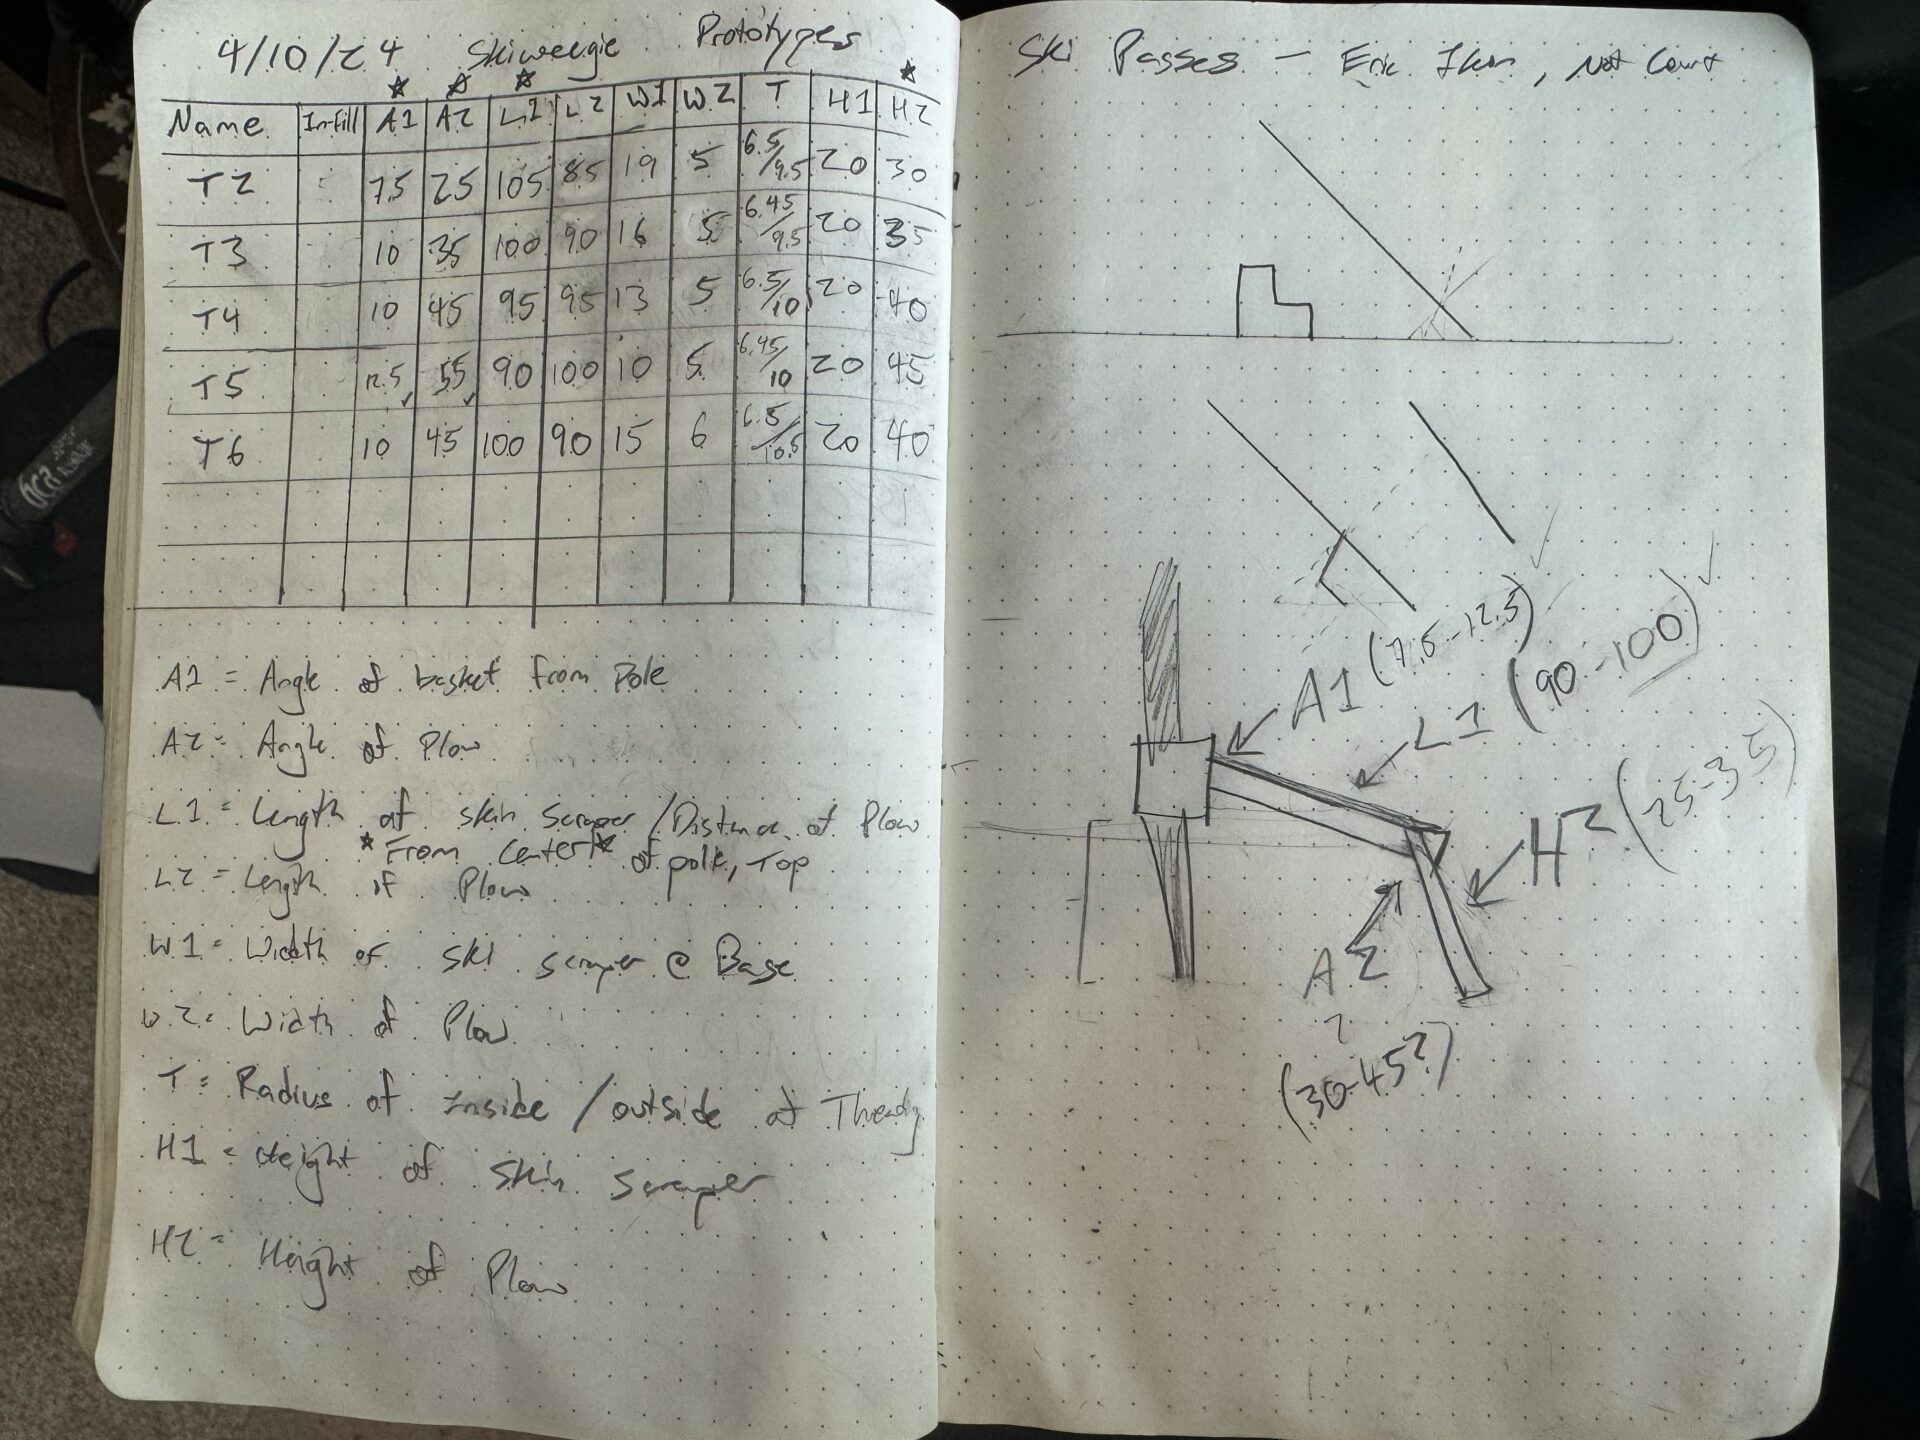 4/10/24 Skiweegie Prototypes
Name Infill A1 A2 L1 L2 W1 W2 T H1 H2
T2 7.5 25 105 85 19 5 6.5/9.5 20 30
T3 10 35 100 90 16 5 6.45/9.5 20 35
T4 10 45 95 95 13 5 6.5/10 20 40
T5 12.5 55 90 100 10 5 6.45/10 20 45
T6 10 45 100 90 15 6 6.5/10.5 20 40
A1 = Angle of basket from pole
A2 = Angle of Plow
L1 = Length of skin scraper / Distance of Plow
*From Center* of pole, Top
L2 = Length of Plow
W1 = Width of ski scraper @ Base
W2 = Width of Plow
T = Radius of inside / outside of Threads
H1 = Height of skin scraper
H2 = Height of Plow
Ski Passes – Eric Ikon, Not Court
A1 (7.5-12.5)
L1 (90-100)
H2 (25-35)
A2
?
(30-45?)